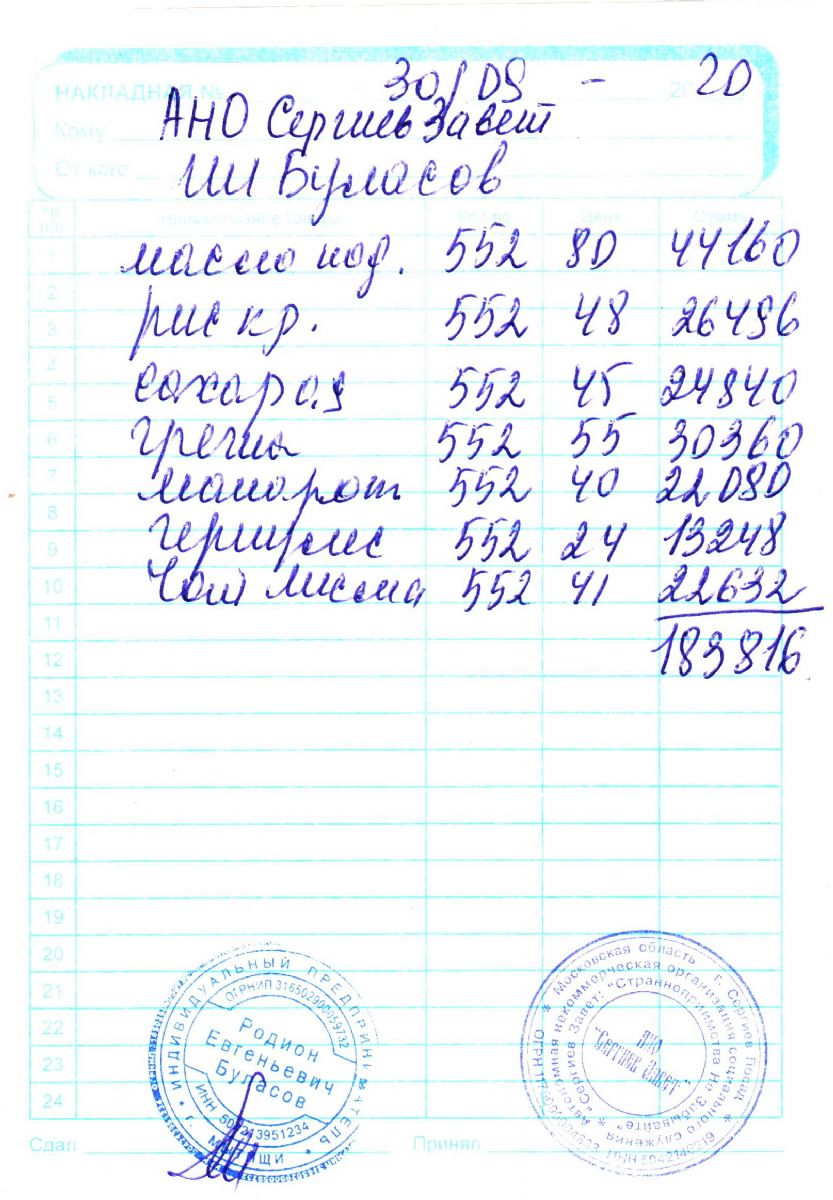 НАКЛАДНАЯ № 30/09 - 2020
Кому АНО Сергиев Завет
От кого ИП Буласов
№ п/п Наименование товара Кол-во Цена Сумма
1 масло под. 552 80 44160
2
3 рис кр. 552 48 26496
4
5 сахар.я 552 45 24840
6 гречка 552 55 30360
7 макорот 552 40 22080
8
9 552 24 13248
10 Чай Лисма 552 41 22632
11
12 183816
13
14
15
16
17
18
19
20
21
22
23
24
Сдал Принял
ИНДИВИДУАЛЬНЫЙ ПРЕДПРИНИМАТЕЛЬ
ОГРНИП 316502900059732
Родион
Евгеньевич
Буласов
ИНН 500213951234
г. МЫТИЩИ
Московская область г. Сергиев Посад
Автономная некоммерческая организация социального служения
"Сергиев Завет: "Странноприимства Не Забывайте"
АНО
"Сергиев Завет"